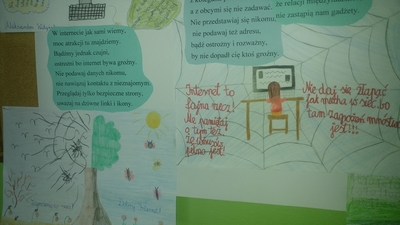 a z obcymi się nie zadawać.
Nie przedstawiaj się nikomu,
nie podawaj też adresu,
bądź ostrożny i rozważny,
by nie dopadł cię ktoś groźny.
że relacji
nie zastąpią nam gadżety.
W internecie jak sami wiemy,
moc atrakcji tu znajdziemy.
Bądźmy jednak czujni,
ostrożni bo internet bywa groźny.
Nie podawaj danych nikomu,
nie nawiązuj kontaktu z nieznajomym.
Przeglądaj tylko bezpieczne strony,
uważaj na dziwne linki i ikony.
Internet to
fajna rzecz!
Ale pamiętaj
o tym też
że
Nie daj się złapać
jak mucha w sieć, bo
tam zagrożeń mnóstwo
jest!!!